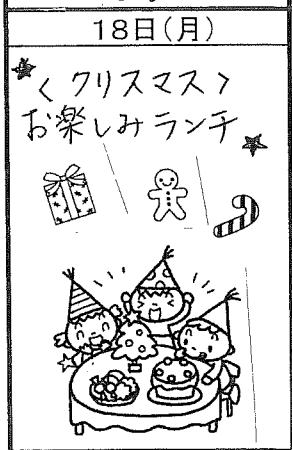 18日(月)
<クリスマス>
お楽しみランチ